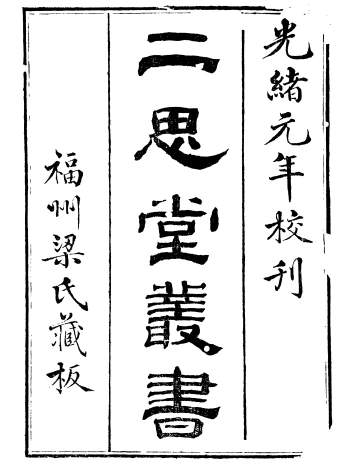 光緒元年校刊
二思堂叢書
福州梁氏藏板